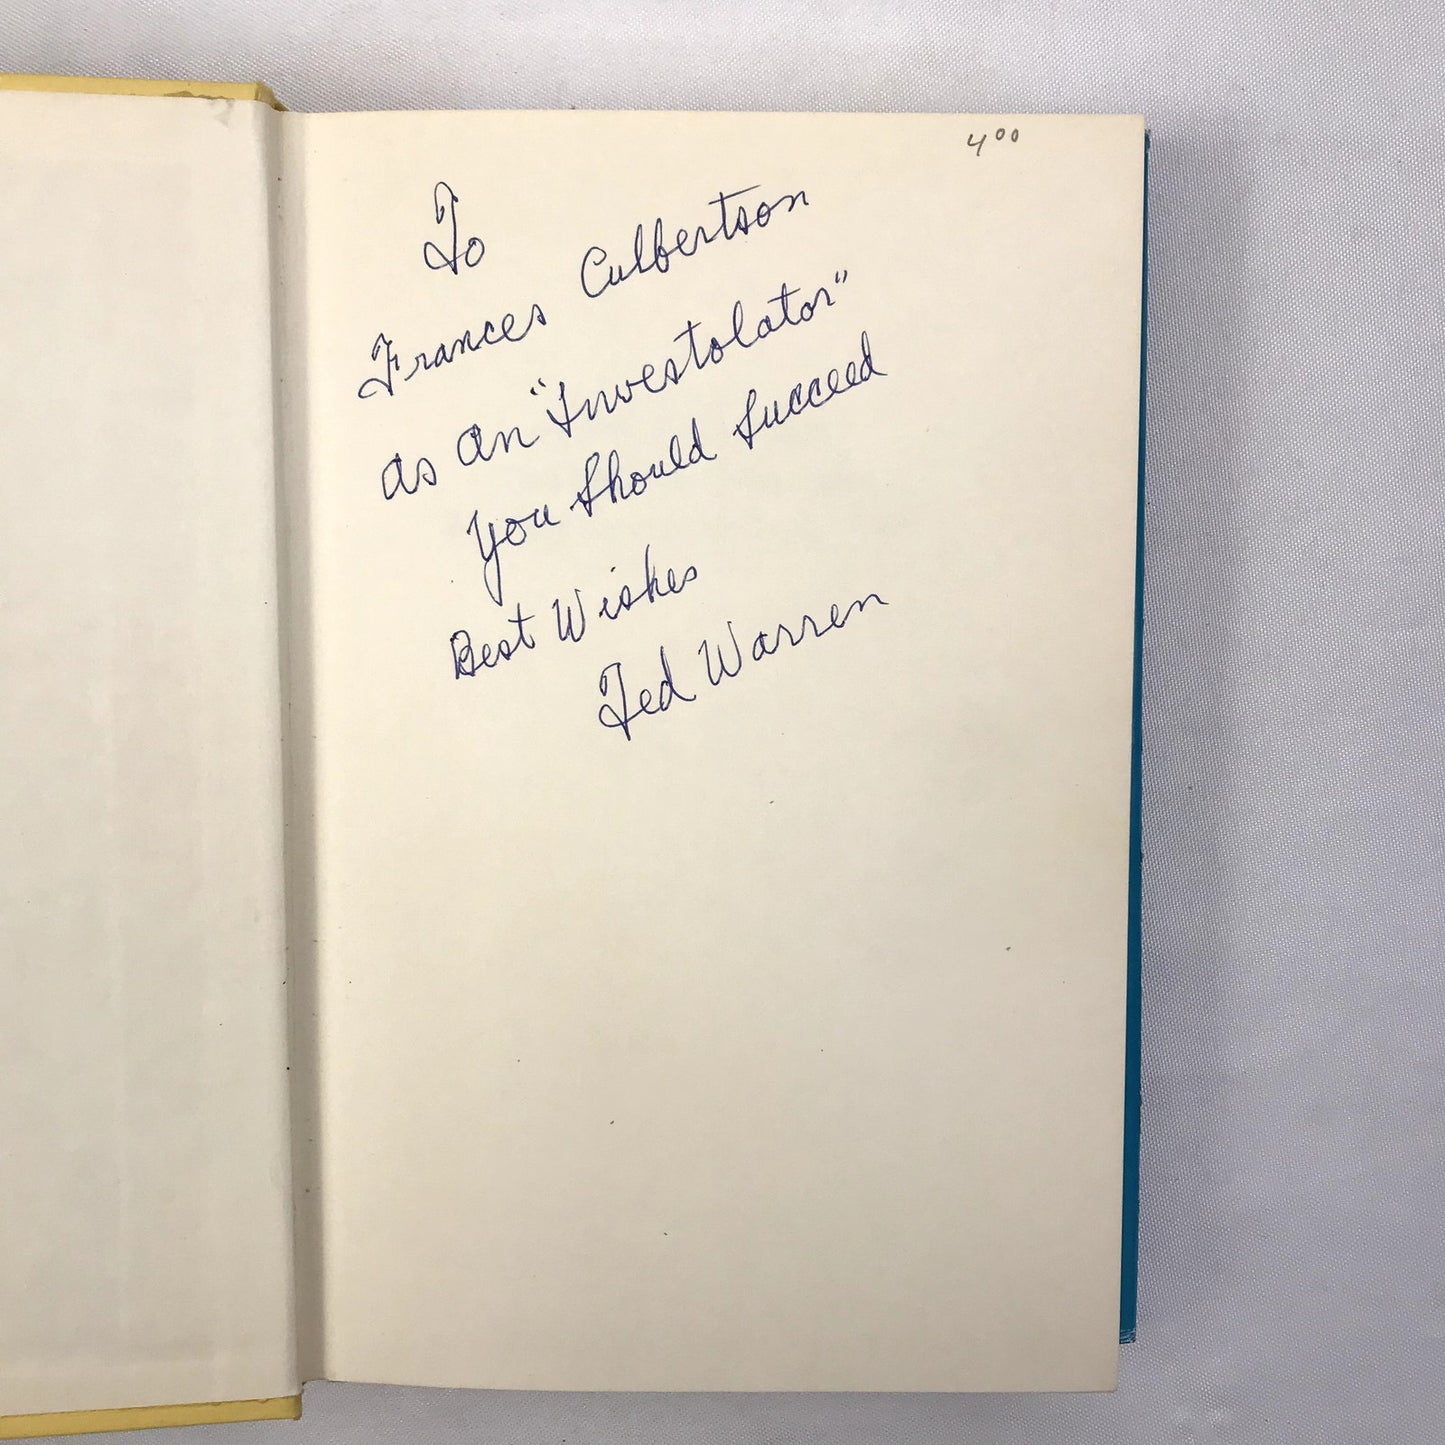 4⁰⁰
To
Frances Culbertson
as an "Investolator"
you should succeed
Best Wishes
Ted Warren